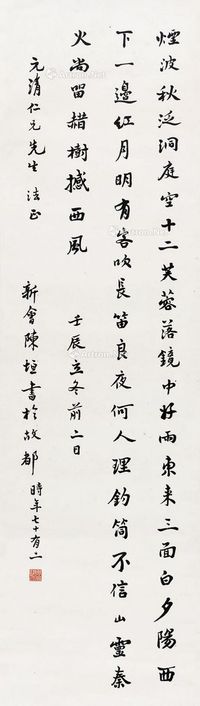 煙波秋泛洞庭空十二芙蓉落鏡中好雨東来三面白夕陽西
下一邊紅月明有客吹長笛良夜何人理釣筒不信山靈秦
火尚留赭樹撼西風
壬辰立冬前二日
元清仁兄先生法正
新會陳垣書於故都時年七十有二